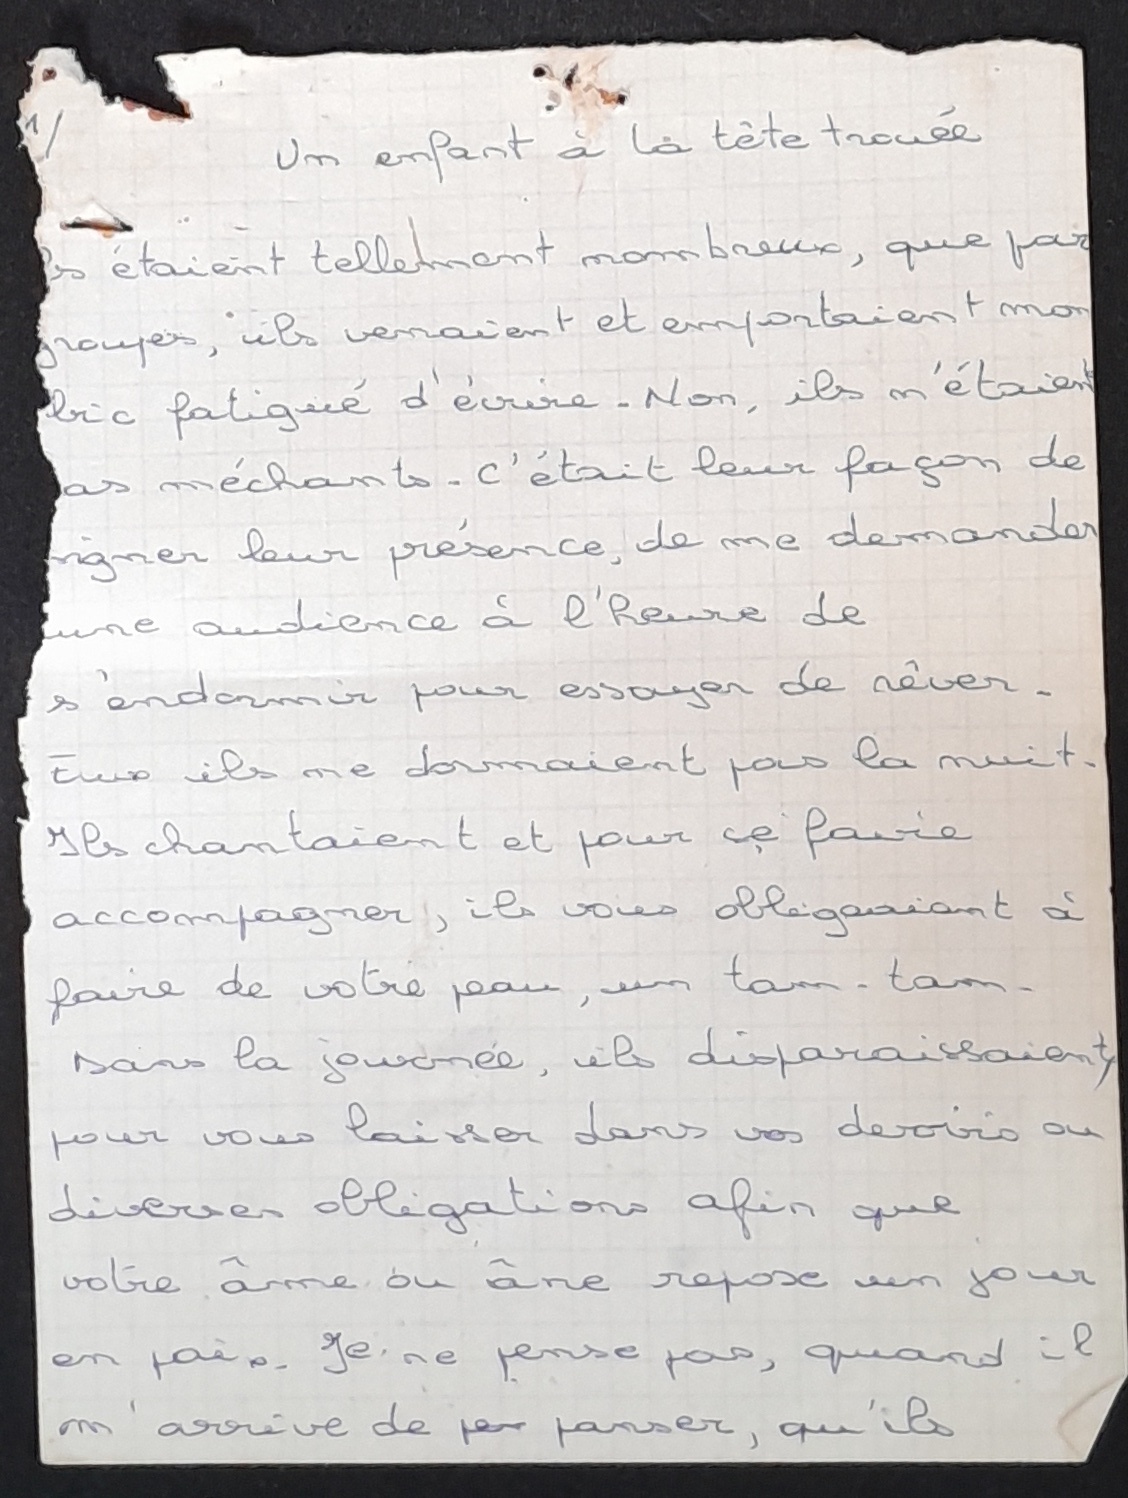 1/
Un enfant à la tête trouée
ls étaient tellement nombreux, que par
groupes, ils venaient et emportaient mon
bic fatigué d'écrire. Non, ils n'étaient
as méchants. C'était leur façon de
signer leur présence, de me demander
une audience à l'heure de
s'endormir pour essayer de rêver.
Eux ils ne dormaient pas la nuit.
Ils chantaient et pour se faire
accompagner, ils vous obligeaient à
faire de votre peau, un tam-tam.
Dans la journée, ils disparaissaient,
pour vous laisser dans vos devoirs ou
diverses obligations afin que
votre âme ou âne repose un jour
en paix. Je ne pense pas, quand il
m'arrive de per panser, qu'ils